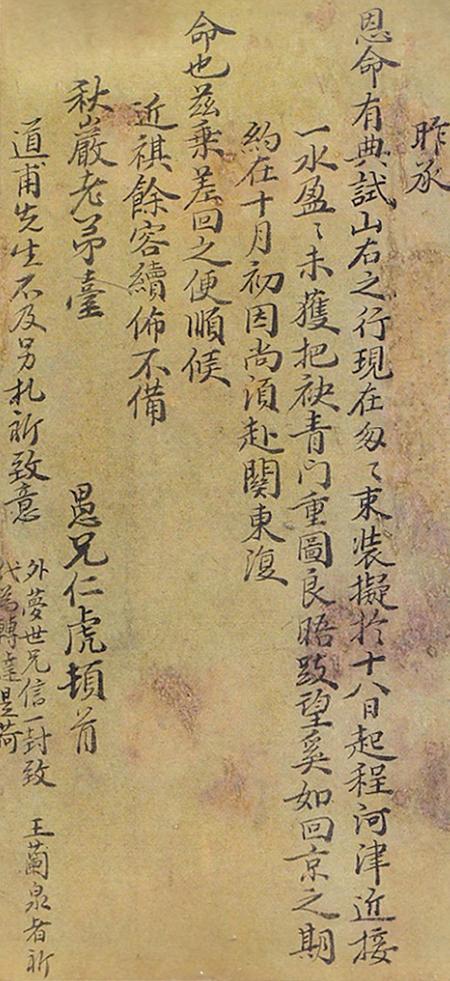 昨承
恩命有典試山右之行現在匆〻束裝擬於十八日起程河津近接
一水盈〻未獲把袂青門重圖良晤跂望奚如回京之期
約在十月初因尚須赴關東復
命也茲乘差回之便順候
近祺餘容續佈不備
秋巖老弟臺
愚兄仁虎頓首
道甫先生不及另札祈致意
外夢世兄信一封致 王蘭泉者祈
代為轉達是荷